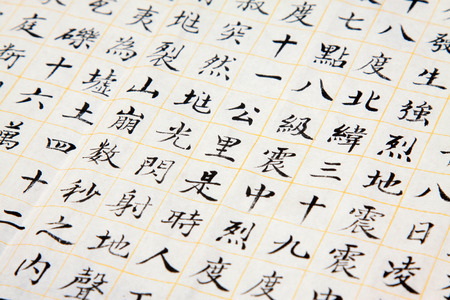 八日凌
發生強烈地震震中
十八度北緯三十九度
七點八級震中烈度
度十一公里是時人
突然地光閃射地聲
裂山崩数秒之內
夷為墟土四十二
礫十六萬